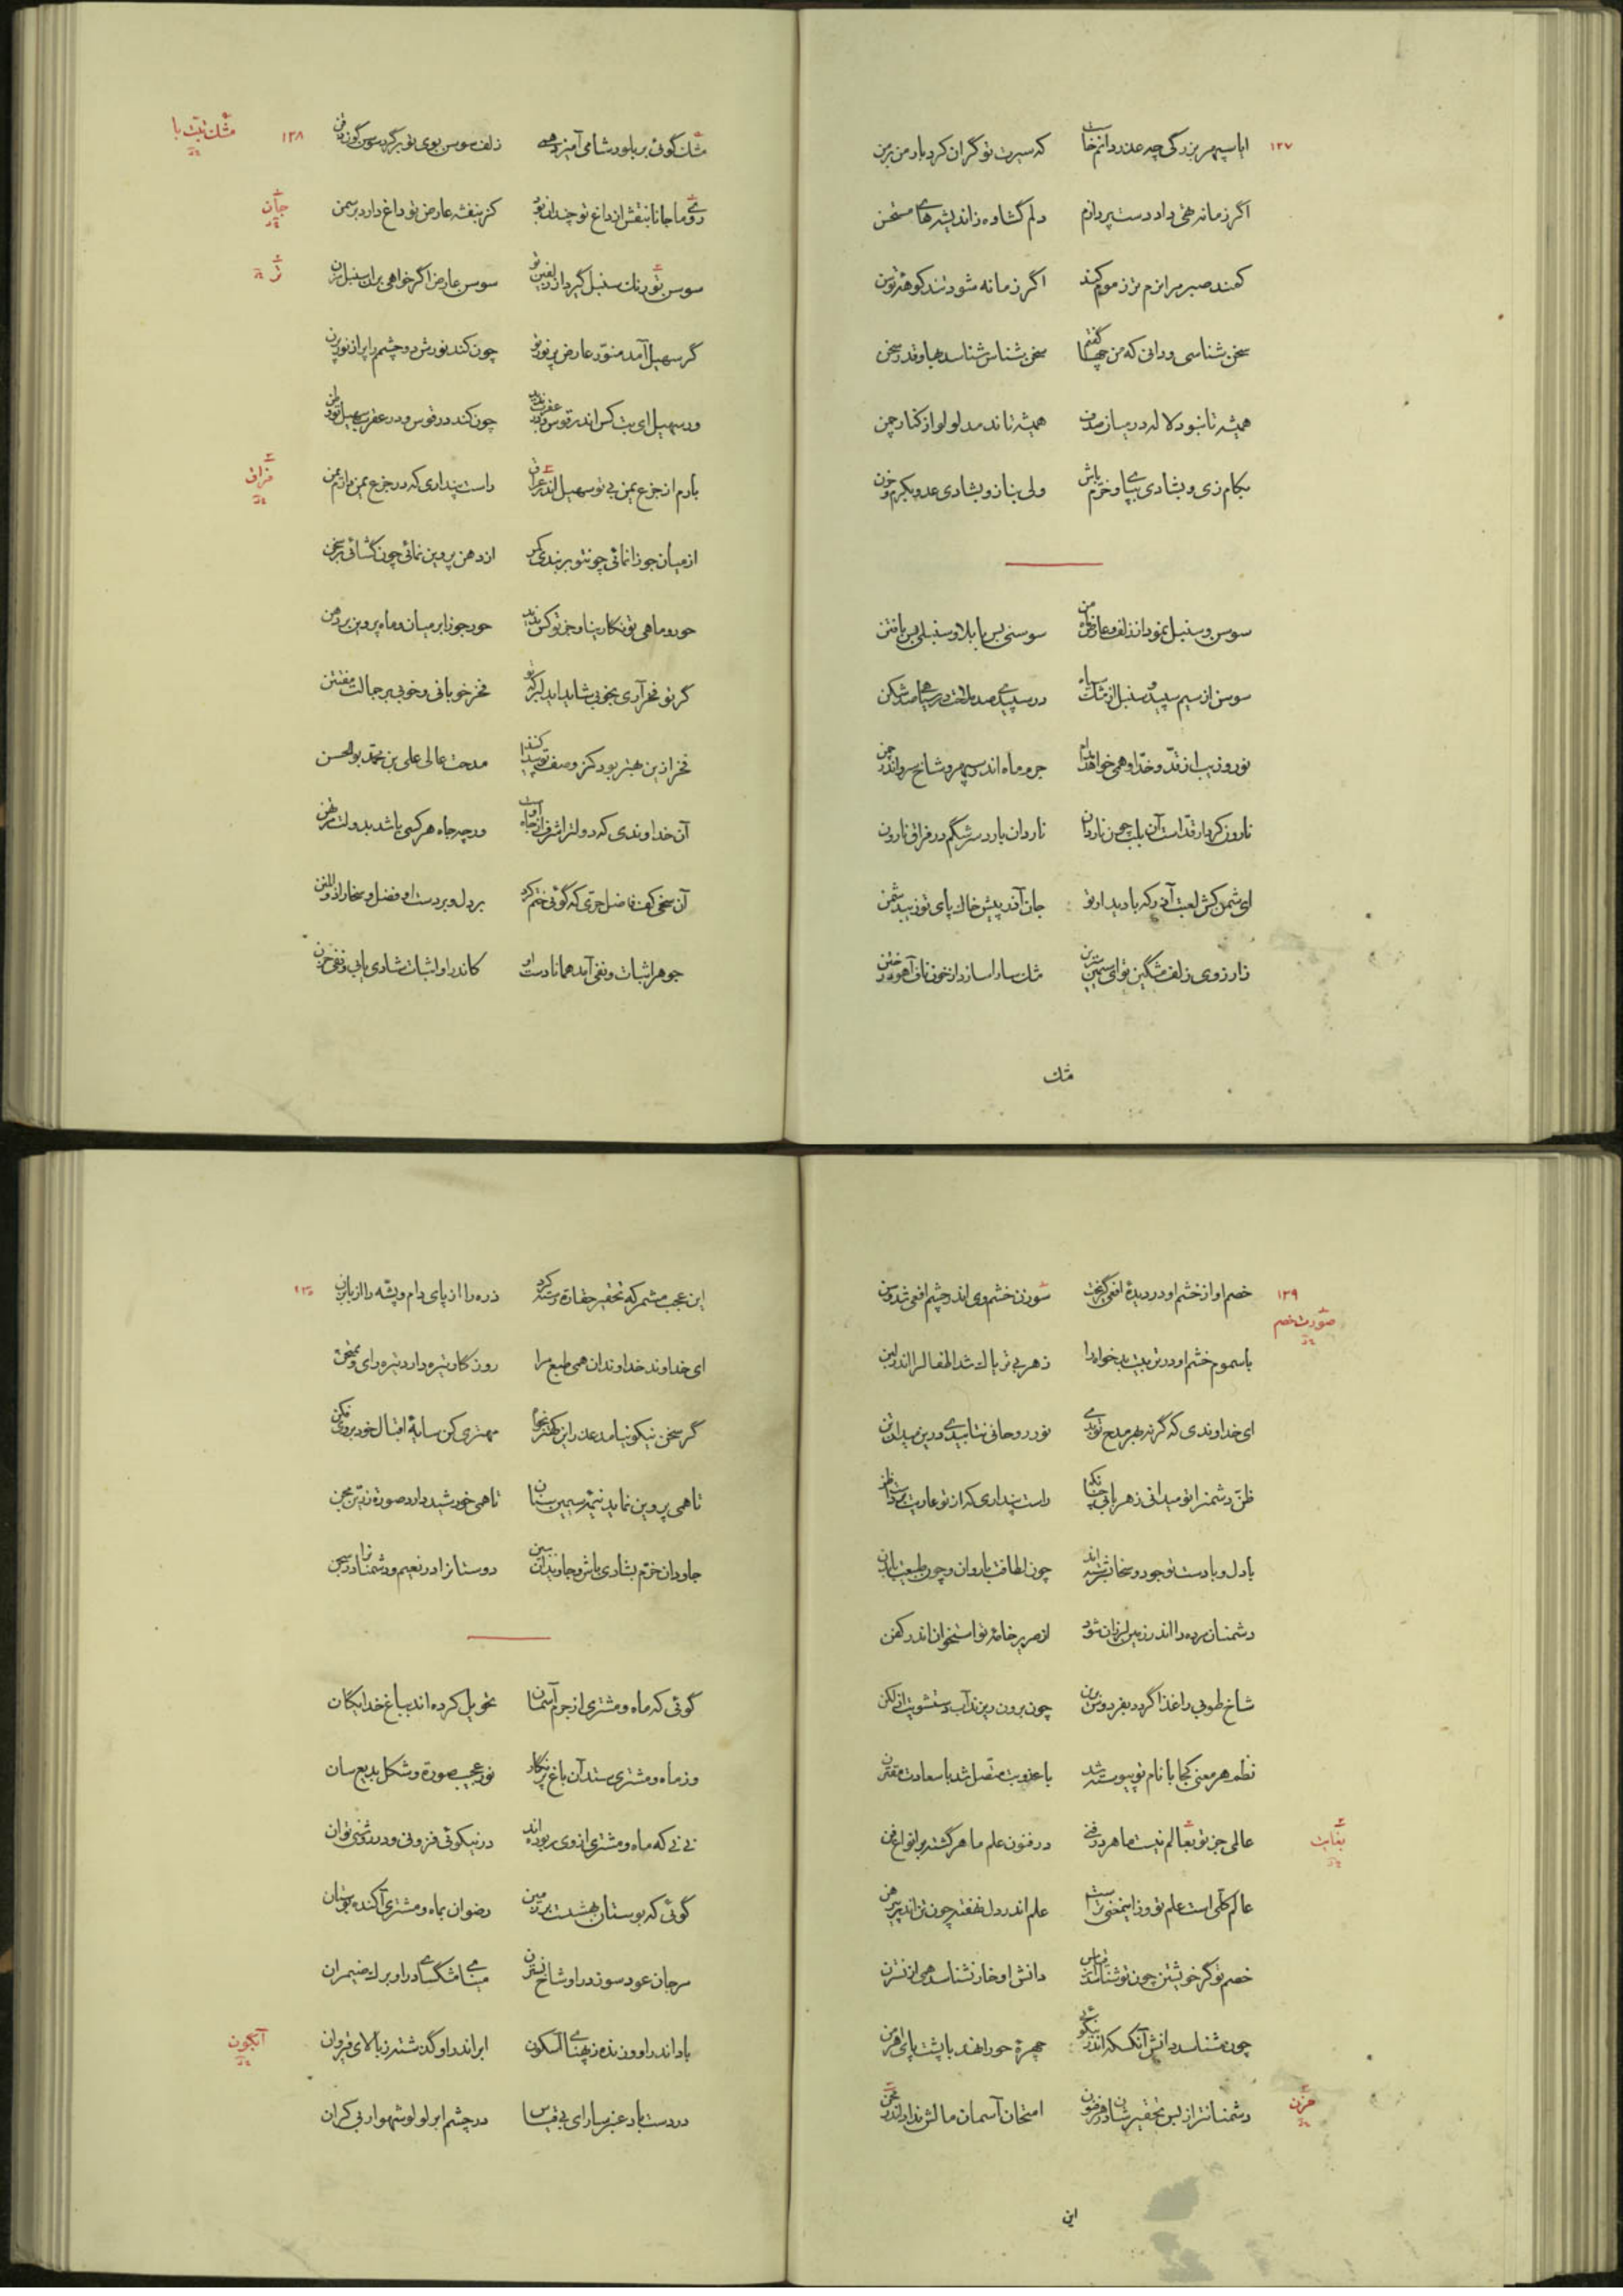 ۱۲۷
ایا سپهر بزرگی چه عذر دانم خاست که سیرت تو گران کرد بار من بر من
اگر زمانه همی داد دست پردازم دلم گشاده ز اندیشه‌های مستحن
کمند صبر مرا نرم نرم موم کند اگر زمانه شود تند کوهه توسن
سخن شناسی و دانی که من چها گفتم سخن شناس شناسد بها و قدر سخن
همیشه تا نبود لاله در میان صدف همیشه تا ندمد لولو از کنار چمن
بکام زی و بشادی بپای و خرم باش ولی بناز و بشادی عدو بکرم و حزن
سوسن و سنبل نمود از زلف و عارض ماه من سوسنی بس با بلا و سنبلی بس با فتن
سوسن از سیم سپید و سنبل از مشک سیاه در سپیدی صد ملاحت در سیاهی صد شکن
نور و زیب از قد و خد او همی خواهند وام جرم ماه اندر سپهر و شاخ سرو اندر چمن
نارون کردار قد است آن بلب چون ناردان ناردان بارد سرشگم در فراق نارون
ای شمن کش لعبت آذر که با دیدار تو جان آذر پیش خاک پای تو زیبد شمن
ز آرزوی زلف مشگین تو ای سیمین بدن مشک سارا سازد از خون ناف آهو در ختن
مشک
۱۲۸
مشک گوئی بر بلور شامی آمیزد همی زلف سوسن بوی تو بر گرد سوسن گون ذقن
مشک تبت با
روی ما جانا بنقش از داغ تو چندان نبود کز بنفشه عارض تو داغ دارد بر سمن
جان
سوسن تو رنگ سنبل گیرد از زلفین تو سوسن عارض اگر خواهی بران سنبل مزن
گر سهیل آمد منور عارض پر نور تو چون کند نورش دو چشمم را پر از نور پرن
ور سهیل ای بت کس اندر قوس و در عقرب ندید چون کند در قوس و در عقرب سهیل تو وطن
بارم از جزع یمن بی تو سهیل اندر عراق راست پنداری که در جزع یمن دارم یمن
فراق
از میان جوزا نمائی چون تو بر بندی کمر از دهن پروین نمائی چون گشائی بر سخن
حور و ماهی تو نگارینا و جز تو کس ندید حور جوزا بر میان و ماه پروین بر دهن
گر تو فخر آری بخوبی شاید ای دلبر که تو فخر خوبانی و خوبی بر جمالت مفتتن
فخر ازین بهتر بود کز وصف تو پیدا کنند مدحت عالی علی بن محمد بوالحسن
آن خداوندی که دولت را شرف از جاه اوست ورچه جاه هر کسی باشد بدولت مرتهن
آن سخی کف فاضل حری که گوئی ختم کرد بر دل و بر دست او فضل و سخا را ذوالمنن
جوهر اثبات و نفی آمد همانا دست او کاندر او اثبات شادی یابی و نفی حزن
۱۲۹
خصم او از خشم او در دیدهٔ افعی گریخت سوزن خشم وی اندر چشم افعی شد وسن
صورت خصم
با سموم خشم او در تربیت بدخواه را زهر بی تریاک شد اطفال را اندر لبن
ای خداوندی که گر نه بهر مدح تو بدی نور روحانی نتابیدی درین میدان تن
ظن دشمن را تو میدانی ز هر بابی چنانک راست پنداری که از تو عاریت بردست ظن
با دل و با دست تو جود و سخا سرشته‌اند چون لطافت با روان و چون طبیعت با بدن
دشمنان مرده را اندر زمین لرزان شود از صریر خامهٔ تو استخوان اندر کفن
شاخ طوبی را غذا گردد بفردوس برین چون برون ریزند آب دستشویت از لگن
نظم هر معنی کجا با نام تو پیوسته شد با عذوبت متصل شد با سعادت مقترن
عالمی جز تو بعالم نیست ماهر در فنی در فنون علم ماهر گشته بر انواع فن
بغایت
عالم کلی است علم تو وزا اینمعنی تراست علم اندر دل نهفته چون تن اندر پیرهن
خصم تو گر خویشتن چون تو شناسد در قیاس دانش او خار نشناسد همی از نسترن
چون شناسد دانش آنکسکه اندر نیکوئی چهرهٔ حورا نهد با پشت پای اهرمن
دشمنانت را ز بس تحقیر شان در فنون امتحان آسمان مالش نداد اندر محن
حزن
این
۱۳۰
این عجب مشمر که تحقیر حقارت پیشه کرد ذره را از پای دام و پشه را از بابزن
ای خداوند خداوندان همی طبع مرا روزگار تیره دارد تیره رای و ممتحن
گر سخن نیکو نیامد عذر این کهتر بخواه مهتری کن سایهٔ اقبال خود بر وی فکن
تا همی پروین نماید نیزهٔ سیمین سنان تا همی خورشید دارد صورة زرین مجن
جاودان خرم بشادی باش و جاویدان ببین دوستانرا در نعیم و دشمنانرا در سجن
گوئی که ماه و مشتری از جرم آسمان تحویل کرده‌اند بباغ خدایگان
وز ماه و مشتری ستد آن باغ پر نگار نور عجیب صورة و شکل بدیع سان
نی نی که ماه و مشتری از وی ربوده‌اند در نیکوئی فزونی و در روشنی توان
گوئی که بوستان بهشتست بر زمین رضوان بماه و مشتری آکنده بوستان
مرجان عود سوز در او شاخ نسترن مینای مشگسای در او برگ ضیمران
باد اندر او وزنده ز پهنای آبسکون ابر اندر او گذشته ز بالای قیروان
آبگون
در دست باد عنبر سارای بی قیاس در چشم ابر لولو شهوار بی کران